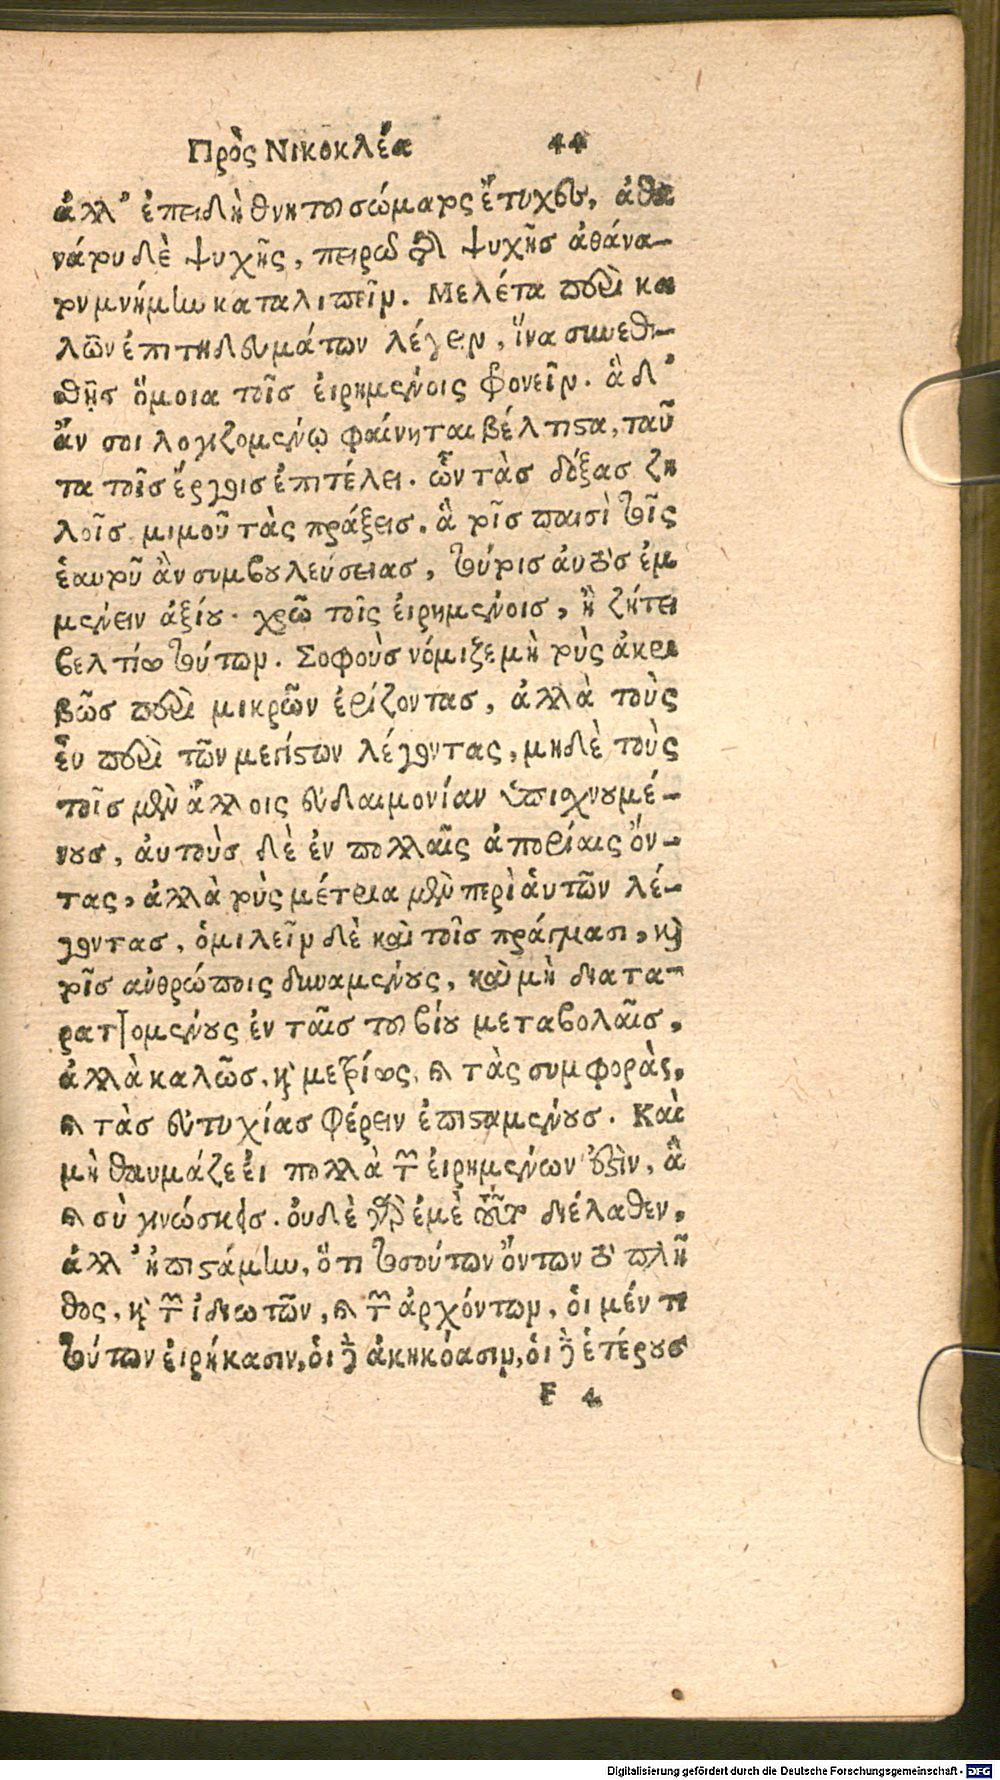 Πρὸς Νικοκλέα 44
ἀλλ᾽ ἐπειδὴ θνητοῦ σώματος ἔτυχες, ἀθα
νάτου δὲ ψυχῆς, πειρῶ τῆς ψυχῆσ ἀθάνα-
τον μνήμην καταλιπεῖν. Μελέτα περὶ κα
λῶν ἐπιτηδευμάτων λέγειν, ἵνα συνεθι-
θῇσ ὅμοια τοῖσ ἐιρημένοις φρονεῖν. ἃ δ᾽
ἄν σοι λογιζομένῳ φαίνηται βέλτιστα, ταῦ
τα τοῖσ ἔργοισ ἐπιτέλει. ὧν τὰσ δόξασ ζη
λοῖσ μιμοῦ τὰς πράξεισ. ἃ τοῖσ παισὶ τοῖς
ἑαυτοῦ ἂν συμβουλεύσειασ, τούτοισ ἀυτὸσ ἐμ
μένειν ἀξίου. χρῶ τοῖς ἐιρημένοισ, ἢ ζήτει
βελτίω τούτων. Σοφοὺσ νόμιζε μὴ τοὺς ἀκρι
βῶσ περὶ μικρῶν ἐρίζοντασ, ἀλλὰ τοὺς
ἐῦ περὶ τῶν μεγίστων λέγοντας, μηδὲ τοὺς
τοῖσ μὲν ἄλλοις εὐδαιμονίαν ὑπισχνουμέ-
νουσ, ἀυτοὺσ δὲ ἐν πολλαῖς ἀπορίαις ὄν-
τας, ἀλλὰ τοὺς μέτρια μὲν περὶ ἁυτῶν λέ-
γοντασ, ὁμιλεῖν δὲ καὶ τοῖσ πράγμασι, καὶ
τοῖσ ἀνθρώποις δυναμένους, καὶ μὴ διατα-
ραττομένους ἐν ταῖσ τοῦ βίου μεταβολαῖσ,
ἀλλὰ καλῶσ, καὶ μετρίως, καὶ τὰς συμφορὰς,
καὶ τὰσ εὐτυχίασ φέρειν ἐπισταμένουσ. Καὶ
μὴ θαυμάζε ἐι πολλὰ τῶν ἐιρημένων ἐστὶν, ἃ
καὶ σὺ γινώσκεισ. ὀυδὲ γὰρ ἐμὲ τοῦτο διέλαθεν,
ἀλλ᾽ ἠπιστάμην, ὅτι τοσούτων ὄντων τὸ πλῆ
θος, καὶ τῶν ἰδιωτῶν, καὶ τῶν ἀρχόντων, ὁι μέν τι
τούτων ἐιρήκασιν, ὁι δὲ ἀκηκόασιν, ὁι δὲ ἑτέρουσ
F 4
Digitalisierung gefördert durch die Deutsche Forschungsgemeinschaft - DFG